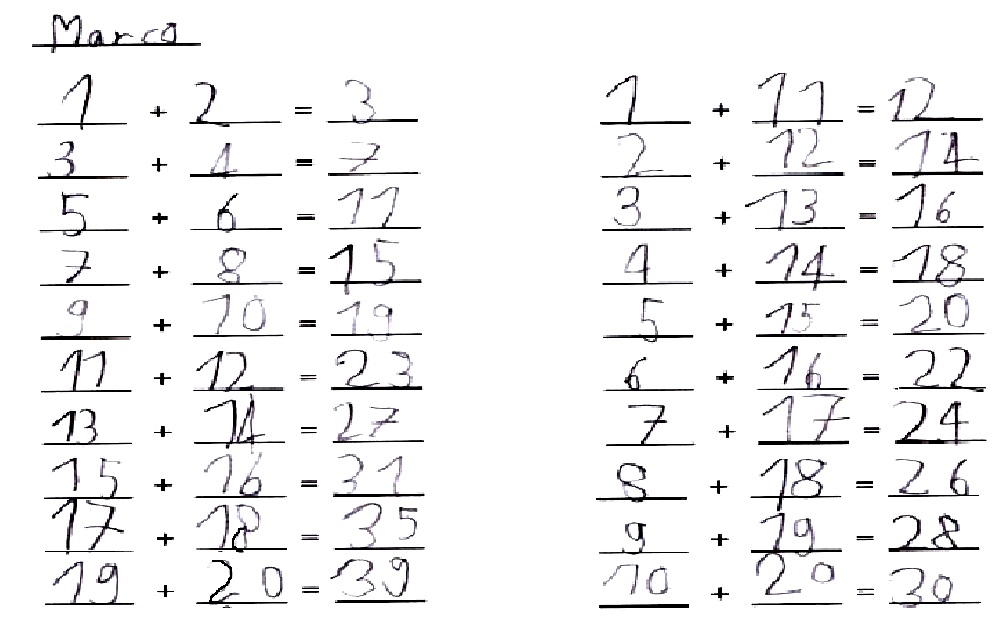 Marco
1 + 2 = 3
3 + 4 = 7
5 + 6 = 11
7 + 8 = 15
9 + 10 = 19
11 + 12 = 23
13 + 14 = 27
15 + 16 = 31
17 + 18 = 35
19 + 20 = 39
1 + 11 = 12
2 + 12 = 14
3 + 13 = 16
4 + 14 = 18
5 + 15 = 20
6 + 16 = 22
7 + 17 = 24
8 + 18 = 26
9 + 19 = 28
10 + 20 = 30